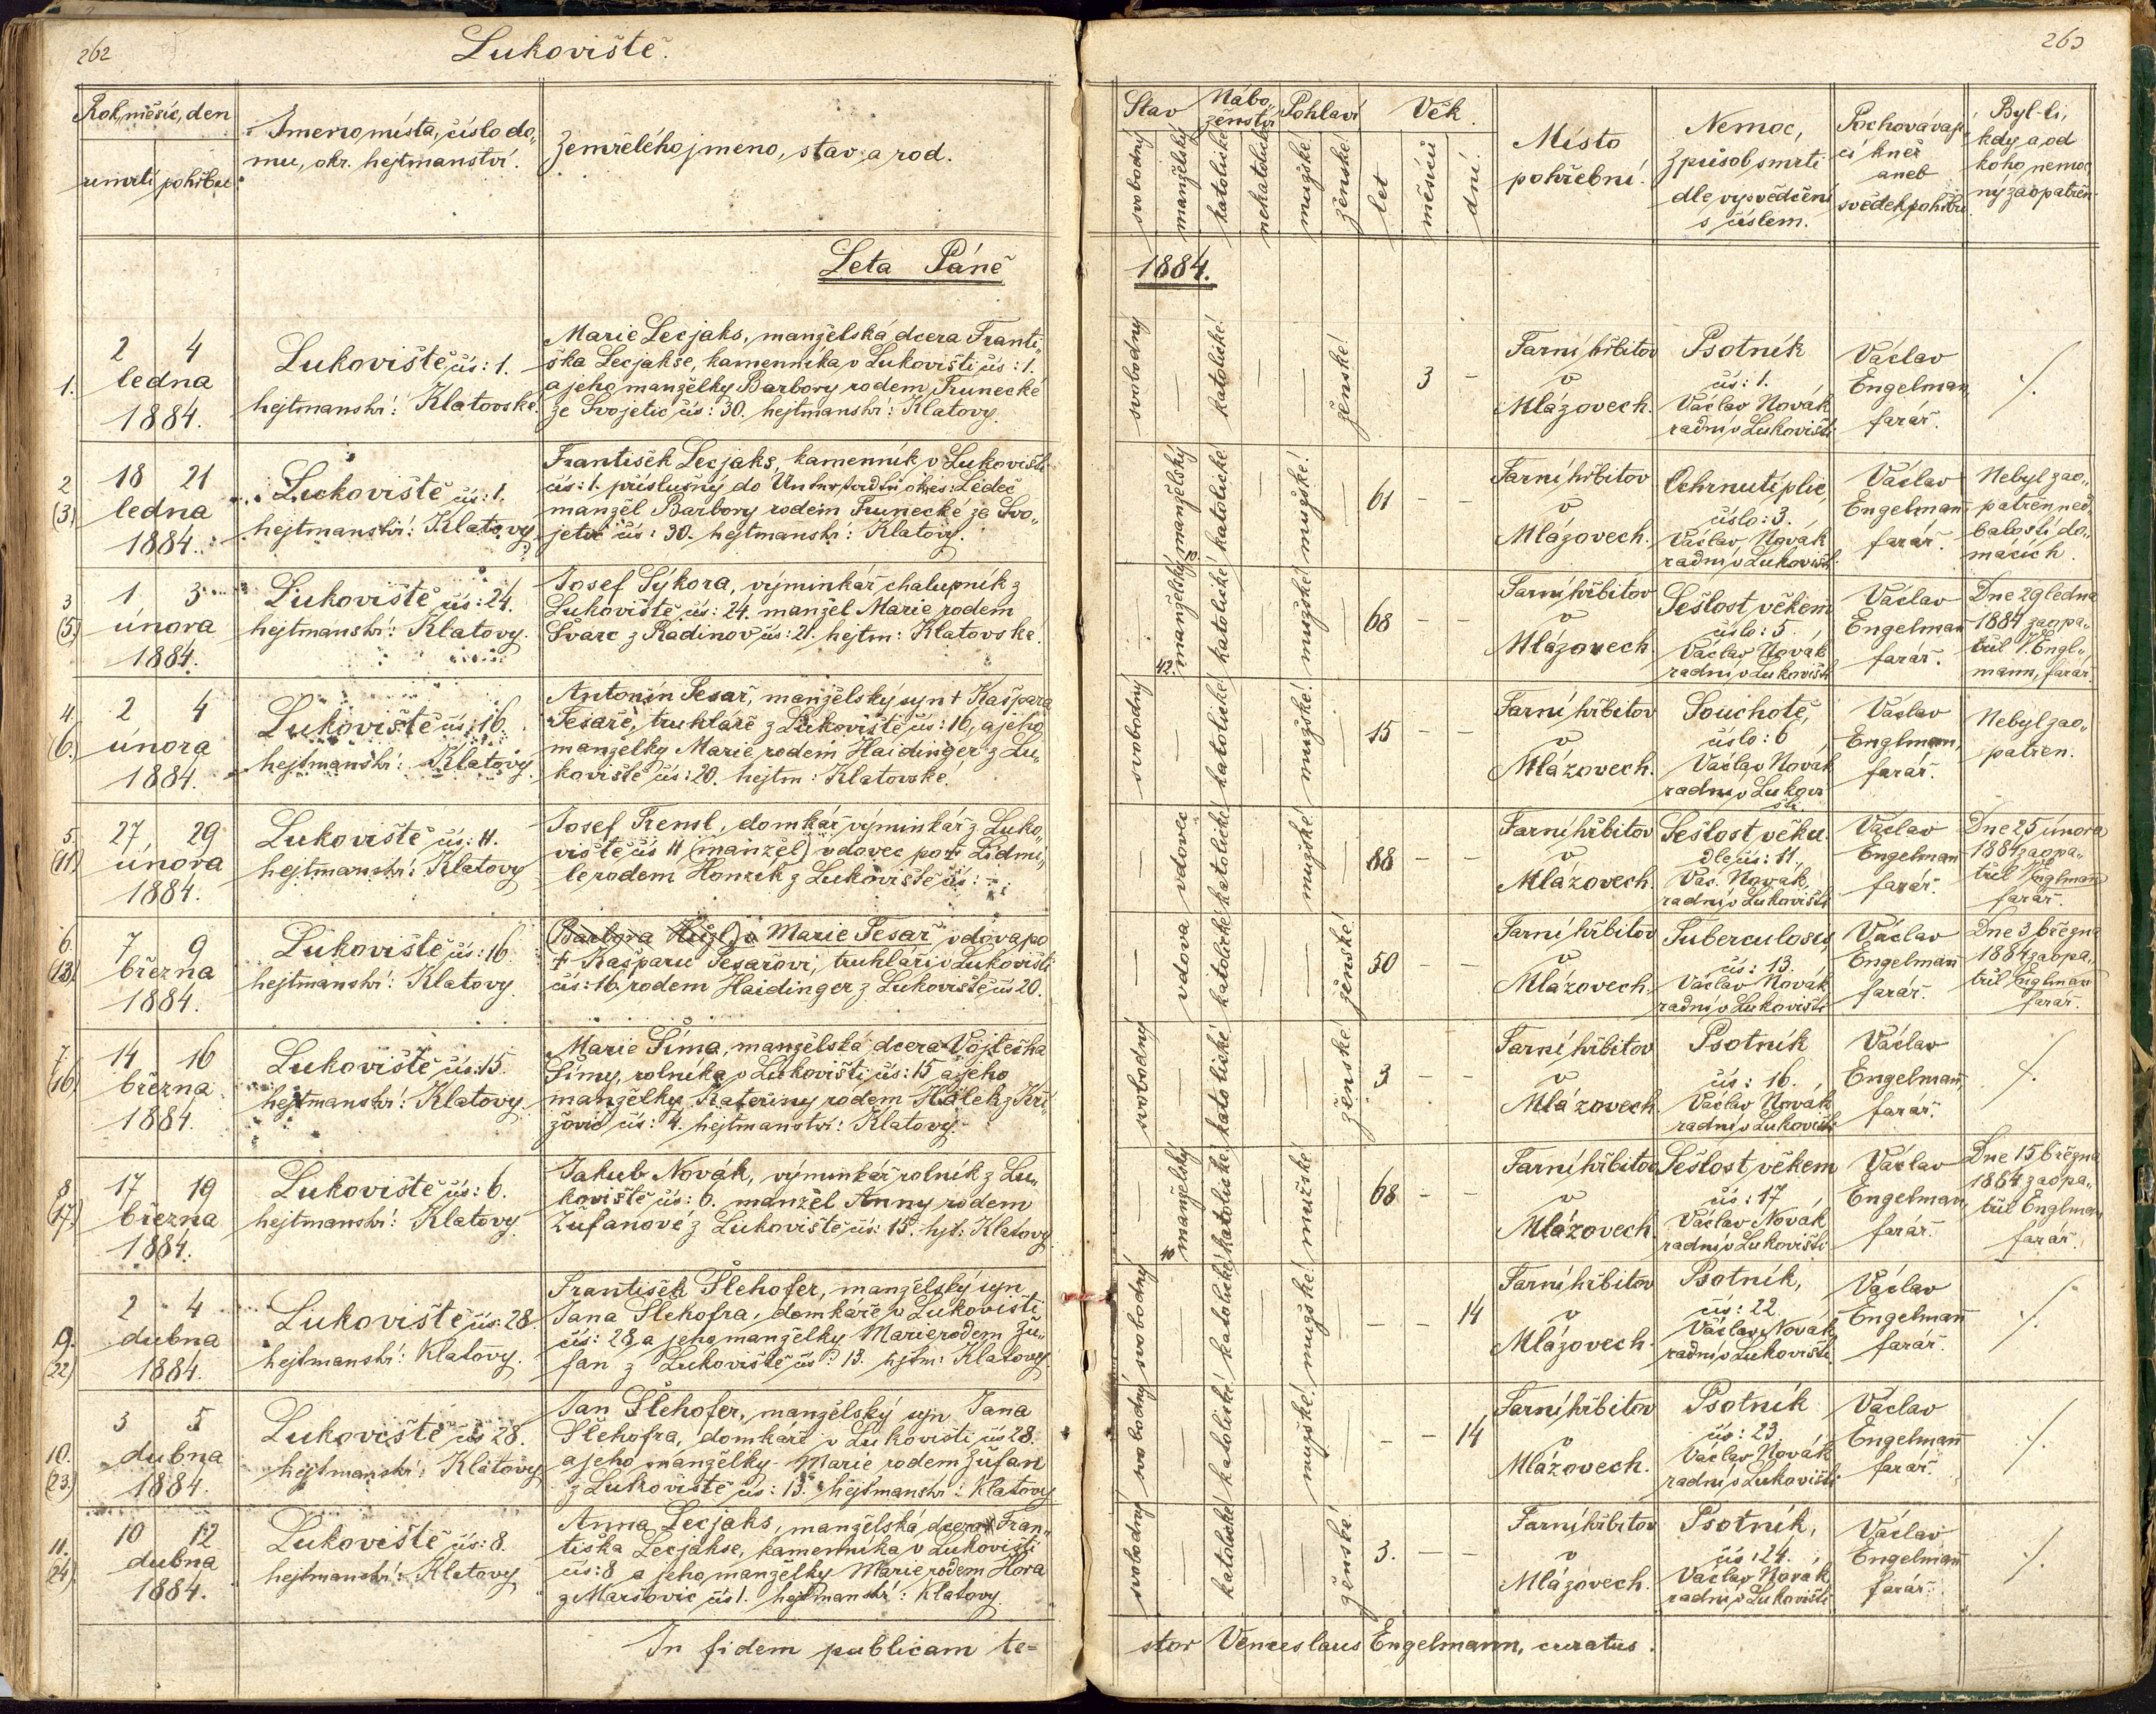 262
Lukoviště.
Rok, měsíc, den
úmrtí pohřbu
Jmeno místa, číslo do„
mu, okr. hejtmanství.
Zemřelého jmeno, stav, a rod.
Leta Páně
1.
2 4
ledna
1884.
Lukoviště čís: 1.
hejtmanství: Klatovské.
Marie Lecjaks, manželská dcera Franti„
ška Lecjakse, kamenníka v Lukovišti čís: 1.
a jeho manželky Barbory rodem Trunecké
ze Svojetic čís: 30. hejtmanství: Klatovy.
2
(3)
18 21
ledna
1884.
Lukoviště čís: 1.
hejtmanství: Klatovy.
František Lecjaks, kamenník v Lukovišti
čís: 1. příslušný do okres: Ledeč
manžel Barbory rodem Trunecké ze Svo„
jetic čís: 30. hejtmanství: Klatovy.
3
(5)
1 3
února
1884.
Lukoviště čís: 24.
hejtmanství: Klatovy.
Josef Sýkora, výminkář chalupník z
Lukoviště čís: 24. manžel Marie rodem
Švarc z Radinov čís: 21. hejtm: Klatovské.
4.
(6.)
2 4
února
1884.
Lukoviště čís: 16.
hejtmanství: Klatovy.
Antonín Tesař, manželský syn † Kašpara
Tesaře, truhláře z Lukoviště čís: 16, a jeho
manželky Marie, rodem Haidinger z Lu„
koviště čís: 20. hejtm: Klatovské.
5.
(11)
27 29
února
1884.
Lukoviště čís: 11.
hejtmanství: Klatovy
Josef Trensl, domkář výminkář z Luko„
viště čís 11 (manžel) vdovec po † Lidmi„
le rodem Honzík z Lukoviště čís: -
6.
(13)
7 9
března
1884.
Lukoviště čís: 16.
hejtmanství: Klatovy.
(Barbora ) Marie Tesař vdova po
† Kašparu Tesařovi, truhláři v Lukovišti
čís: 16. rodem Haidinger z Lukoviště čís 20.
7
(16)
14 16
března
1884.
Lukoviště čís: 15.
hejtmanství: Klatovy.
Marie Šíma, manželská dcera Vojtěcha
Šímy, rolníka v Lukovišti čís: 15 a jeho
manželky Kateřiny rodem Hálek z Kři„
žovic čís: 4. hejtmanství: Klatovy.
8
(17)
17 19
března
1884.
Lukoviště čís: 6.
hejtmanství: Klatovy.
Jakub Novák, výminkář rolník z Lu„
koviště čís: 6. manžel Anny rodem
Žufanové z Lukoviště čís: 15. hjt: Klatovy.
9.
(22)
2 4
dubna
1884.
Lukoviště čís: 28.
hejtmanství: Klatovy.
František Šlehofer, manželský syn
Jana Šlehofra, domkáře v Lukovišti
čís: 28 a jeho manželky Marie rodem Žu„
fan z Lukoviště čís: 13. hjtm: Klatovy
10.
(23.)
3 5
dubna
1884.
Lukoviště čís 28.
hejtmanství: Klatovy
Jan Šlehofer, manželský syn Jana
Šlehofra, domkáře v Lukovišti čís 28.
a jeho manželky Marie rodem Žufan
z Lukoviště čís: 13. hejtmanství: Klatovy
11.
(24)
10 12
dubna
1884.
Lukoviště čís: 8.
hejtmanství: Klatovy
Anna Lecjaks, manželská dcera Fran„
tiška Lecjakse, kamenníka v Lukovišti
čís: 8 a jeho manželky Marie rodem Hora
z Maršovic čís 1. hejtmanství: Klatovy.
In fidem publicam te=
263
Stav
svobodný
manželský
Nábo„
ženství
katolické
nekatolické
Pohlaví
mužské
ženské
Věk.
let
měsíců
dní.
Místo
pohřební.
Nemoc,
způsob smrti
dle vysvědčení
s číslem.
Pochovávají„
cí kněz
aneb
svědek pohřbu
Byl-li,
kdy a od
koho nemoc„
ný zaopatřen
1884.
svobodný
katolické!
ženské!
3 -
Farní hřbitov
v
Mlázovech.
Psotník
čís: 1.
Václav Novák
radní v Lukovišti
Václav
Engelman,
farář.
/.
manželský
katolické!
mužské!
61 - -
Farní hřbitov
v
Mlázovech.
Ochrnutí plic,
číslo: 3.
Václav Novák
radní v Lukovišti.
Václav
Engelmann,
farář.
Nebyl zao„
patřen ned„
balostí do„
mácích.
42. manželský
katolické!
mužské!
68 - -
Farní hřbitov
v
Mlázovech.
Sešlost věkem
číslo: 5.
Václav Novák
radní v Lukovišti
Václav
Engelman
farář.
Dne 29 ledna
1884 zaopa„
třil V. Engl„
mann, farář.
svobodný
katolické!
mužské!
15 - -
Farní hřbitov
v
Mlázovech.
Souchotě,
číslo: 6
Václav Novák
radní v Lukovi
šti.
Václav
Englmann,
farář.
Nebyl zao„
patřen.
vdovec
katolické!
mužské!
88 - -
Farní hřbitov
v
Mlázovech.
Sešlost věku.
dle čís: 11.
Vác. Novák,
radní v Lukovišti
Václav
Engelman
farář.
Dne 25 února
1884 zaopa„
třil Englman
farář.
vdova
katolické!
ženské!
50 - -
Farní hřbitov
v
Mlázovech.
Tuberculosis,
čís: 13.
Václav Novák
radní v Lukovišti
Václav
Engelmann
farář.
Dne 3 března
1884 zaopa„
třil Englman
farář.
svobodný
katolické!
ženské!
3 - -
Farní hřbitov
v
Mlázovech.
Psotník
čís: 16.
Václav Novák
radní v Lukovišti
Václav
Engelmann,
farář.
/.
40 manželský
katolické!
mužské
68 - -
Farní hřbitov
v
Mlázovech.
Sešlost věkem
čís: 17
Václav Novák
radní v Lukovišti
Václav
Engelman,
farář.
Dne 15 března
1884 zaopa„
třil Englman
farář.
svobodný
katolické!
mužské!
- - 14
Farní hřbitov
v
Mlázovech.
Psotník,
čís: 22.
Václav Novák
radní v Lukovišti
Václav
Engelmann
farář.
/.
svobodný
katolické!
mužské!
- - 14
Farní hřbitov
v
Mlázovech.
Psotník
čís: 23
Václav Novák
radní v Lukovišti
Václav
Engelmann
farář.
/.
svobodný
katolické!
ženské!
3. - -
Farní hřbitov
v
Mlázovech.
Psotník,
čís: 24.
Václav Novák
radní v Lukovišti
Václav
Engelmann
farář.
/.
stor Venceslaus Engelmann, curatus.